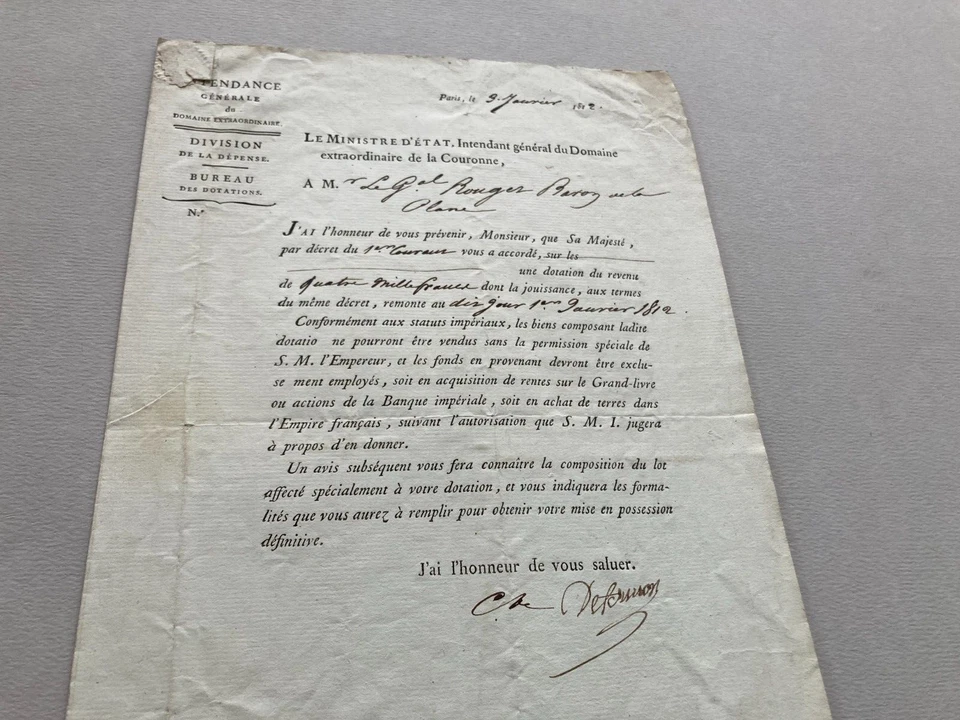 TENDANCE
GÉNÉRALE
du
DOMAINE EXTRAORDINAIRE.
DIVISION
DE LA DÉPENSE.
BUREAU
DES DOTATIONS.
N.º
Paris, le 9. Janvier 1812.
LE MINISTRE D'ÉTAT, Intendant général du Domaine
extraordinaire de la Couronne,
A M.r Le G.al Rouget Baron de la
Plane
J'AI l'honneur de vous prévenir, Monsieur, que Sa Majesté,
par décret du 1er Courant vous a accordé, sur les
une dotation du revenu
de quatre mille francs dont la jouissance, aux termes
du même décret, remonte au dit jour 1er Janvier 1812.
Conformément aux statuts impériaux, les biens composant ladite
dotatio ne pourront être vendus sans la permission spéciale de
S. M. l'Empereur, et les fonds en provenant devront être exclu-
se ment employés, soit en acquisition de rentes sur le Grand-livre
ou actions de la Banque impériale, soit en achat de terres dans
l'Empire français, suivant l'autorisation que S. M. I. jugera
à propos d'en donner.
Un avis subséquent vous fera connaître la composition du lot
affecté spécialement à votre dotation, et vous indiquera les forma-
lités que vous aurez à remplir pour obtenir votre mise en possession
définitive.
J'ai l'honneur de vous saluer.
Cte Defermon